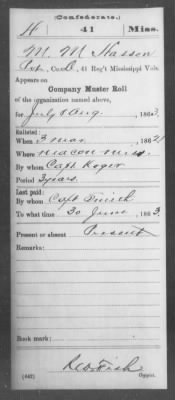 (Confederate.)
H 41 Miss.
M. M. Hasson
Pvt, Co. D, 41 Reg't Mississippi Vols.
Appears on
Company Muster Roll
of the organization named above,
for July & Aug., 1863
Enlisted:
When 3 Mar, 1862
Where Macon Miss
By whom Capt Koger
Period 3 years.
Last paid:
By whom Capt
To what time 30 June, 1863.
Present or absent Present
Remarks:
Book mark:
(642) Copyist.